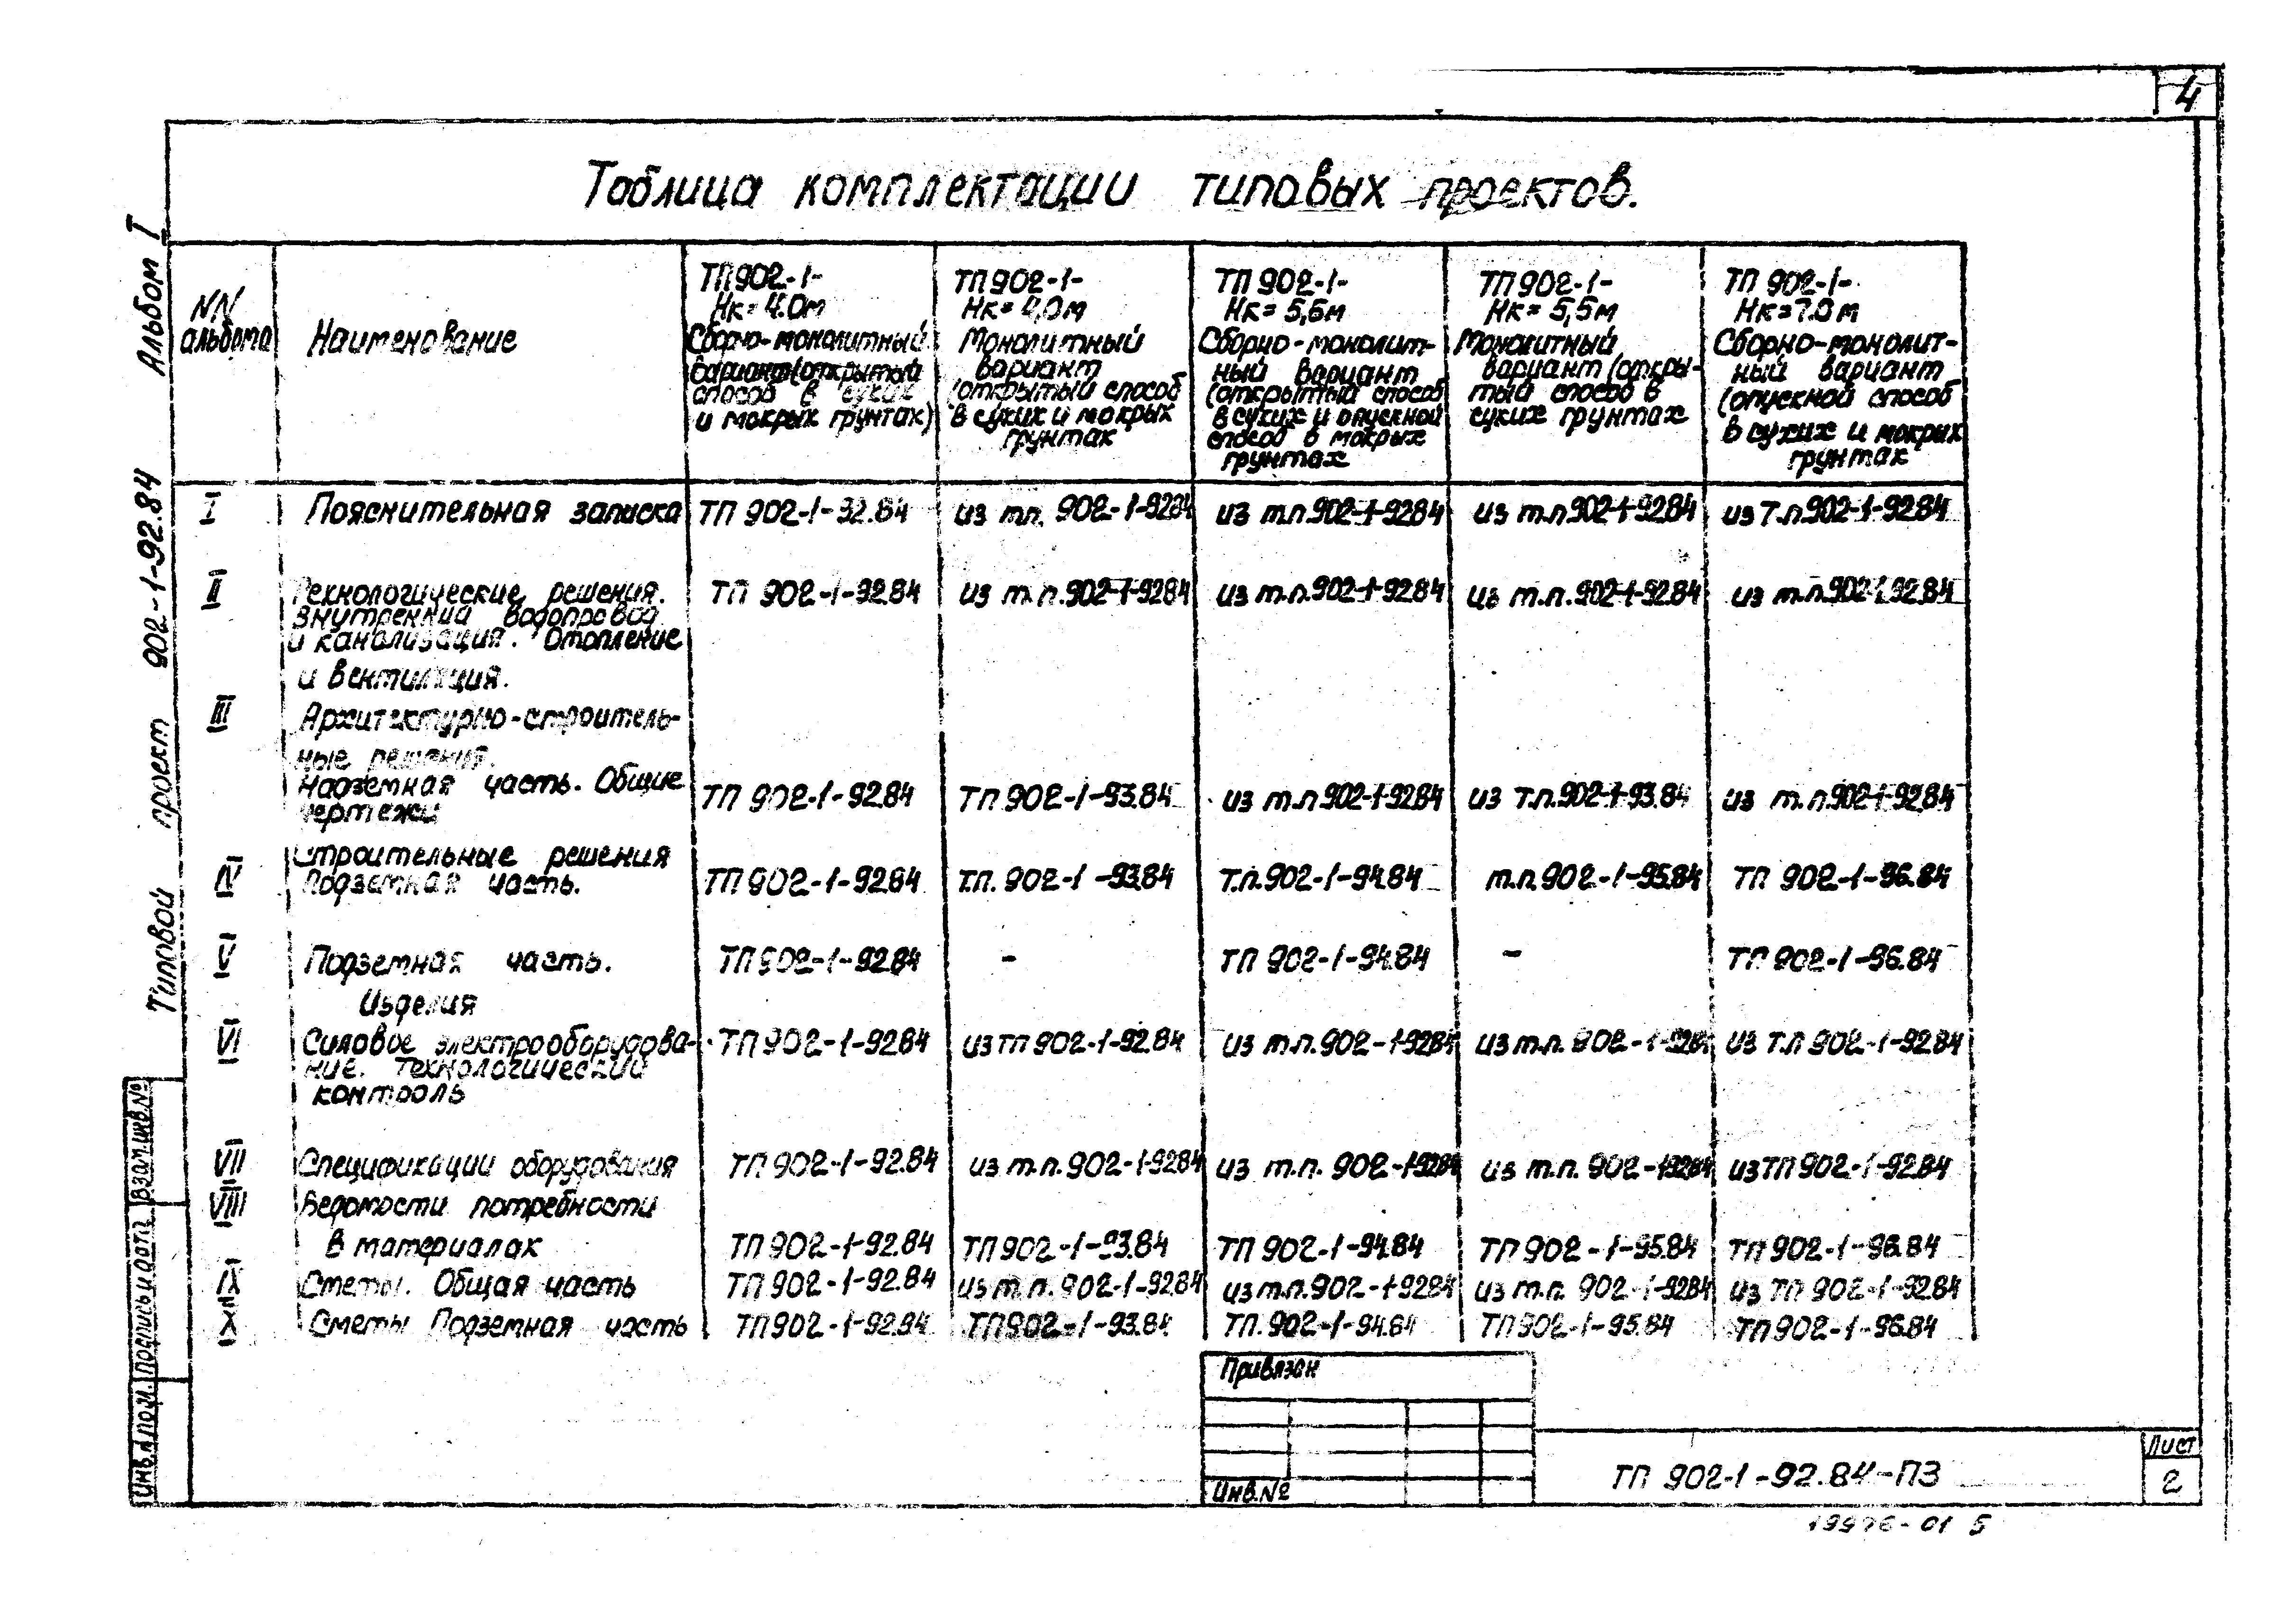 4
Таблица комплектации типовых проектов.
Альбом I
Типовой проект 902-1-92.84
NN альбома
Наименование
ТП 902-1-
Нк= 4.0м
Сборно-монолитный
вариант (открытый
способ в сухих
и мокрых грунтах)
ТП 902-1-
Нк= 4,0м
Монолитный
вариант
(открытый способ
в сухих и мокрых
грунтах
ТП 902-1-
Нк= 5,5м
Сборно-монолит-
ный вариант
(открытый способ
в сухих и опускной
способ в мокрых
грунтах
ТП 902-1-
Нк= 5,5м
Монолитный
вариант (откры-
тый способ в
сухих грунтах
ТП 902-1-
Нк=7.0м
Сборно-монолит-
ный вариант
(опускной способ
в сухих и мокрых
грунтах
I Пояснительная записка ТП 902-1-92.84 из т.п. 902-1-9284 из т.п.902-1-9284 из т.п.902-1-9284 из т.п.902-1-92.84
II Технологические решения. ТП 902-1-92.84 из т.п.902-1-9284 из т.п.902-1-92.84 из т.п.902-1-92.84 из т.п.902-1-92.84
Внутренний водопровод
и канализация. Отопление
и вентиляция.
III Архитектурно-строитель-
ные решения.
Надземная часть. Общие ТП 902-1-92.84 ТП 902-1-93.84 из т.п.902-1-9284 из т.п.902-1-93.84 из т.п.902-1-92.84
чертежи
IV Строительные решения
Подземная часть. ТП 902-1-92.84 Т.П. 902-1-93.84 Т.п.902-1-94.84 т.п.902-1-95.84 ТП 902-1-96.84
V Подземная часть. ТП 902-1-92.84 - ТП 902-1-94.84 - ТП 902-1-96.84
Изделия
VI Силовое электрооборудова- ТП 902-1-92.84 из ТП 902-1-92.84 из т.п.902-1-9284 из т.п. 902-1-9284 из Т.П 902-1-92.84
ние. Технологический
контроль
VII Спецификации оборудования ТП 902-1-92.84 из т.п. 902-1-9284 из т.п. 902-1-9284 из т.п. 902-1-9284 из ТП 902-1-92.84
VIII Ведомости потребности
в материалах ТП 902-1-92.84 ТП 902-1-93.84 ТП 902-1-94.84 ТП 902-1-95.84 ТП 902-1-96.84
IX Сметы. Общая часть ТП 902-1-92.84 из т.п. 902-1-92.84 из т.п.902-1-9284 из т.п. 902-1-9284 из ТП 902-1-92.84
X Сметы Подземная часть ТП902-1-92.84 ТП902-1-93.84 ТП.902-1-94.84 ТП902-1-95.84 ТП902-1-96.84
Взам.инв.№
Подпись и дата
Инв.№ подл.
Привязан
Инв.№
ТП 902-1-92.84-ПЗ
Лист
2
-01 5